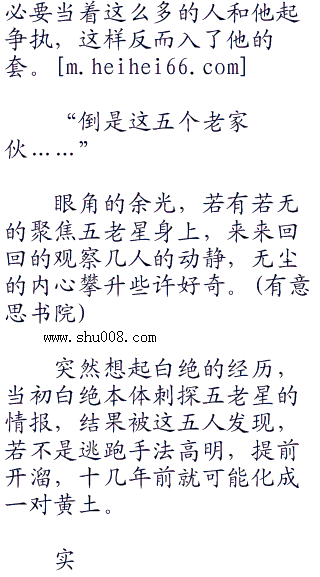 必要当着这么多的人和他起
争执，这样反而入了他的
套。[m.heihei66.com]
“倒是这五个老家
伙……”
眼角的余光，若有若无
的聚焦五老星身上，来来回
回的观察几人的动静，无尘
的内心攀升些许好奇。(有意
思书院)
www.shu008.com
突然想起白绝的经历，
当初白绝本体刺探五老星的
情报，结果被这五人发现，
若不是逃跑手法高明，提前
开溜，十几年前就可能化成
一对黄土。
实